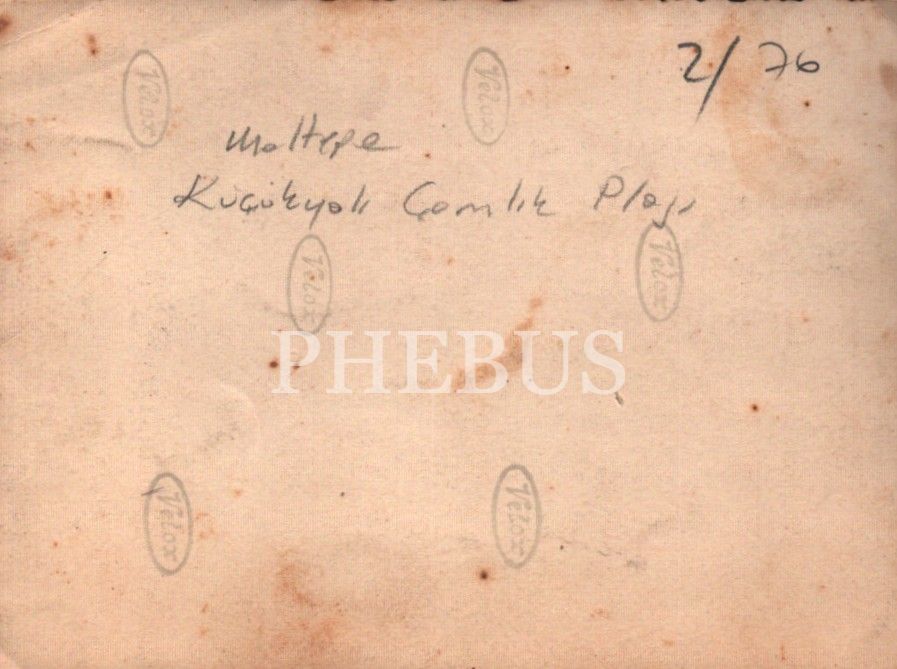 2/76
Velox
Velox
Maltepe
Küçükyalı Çamlık Plajı
Velox
Velox
PHEBUS
Velox
Velox